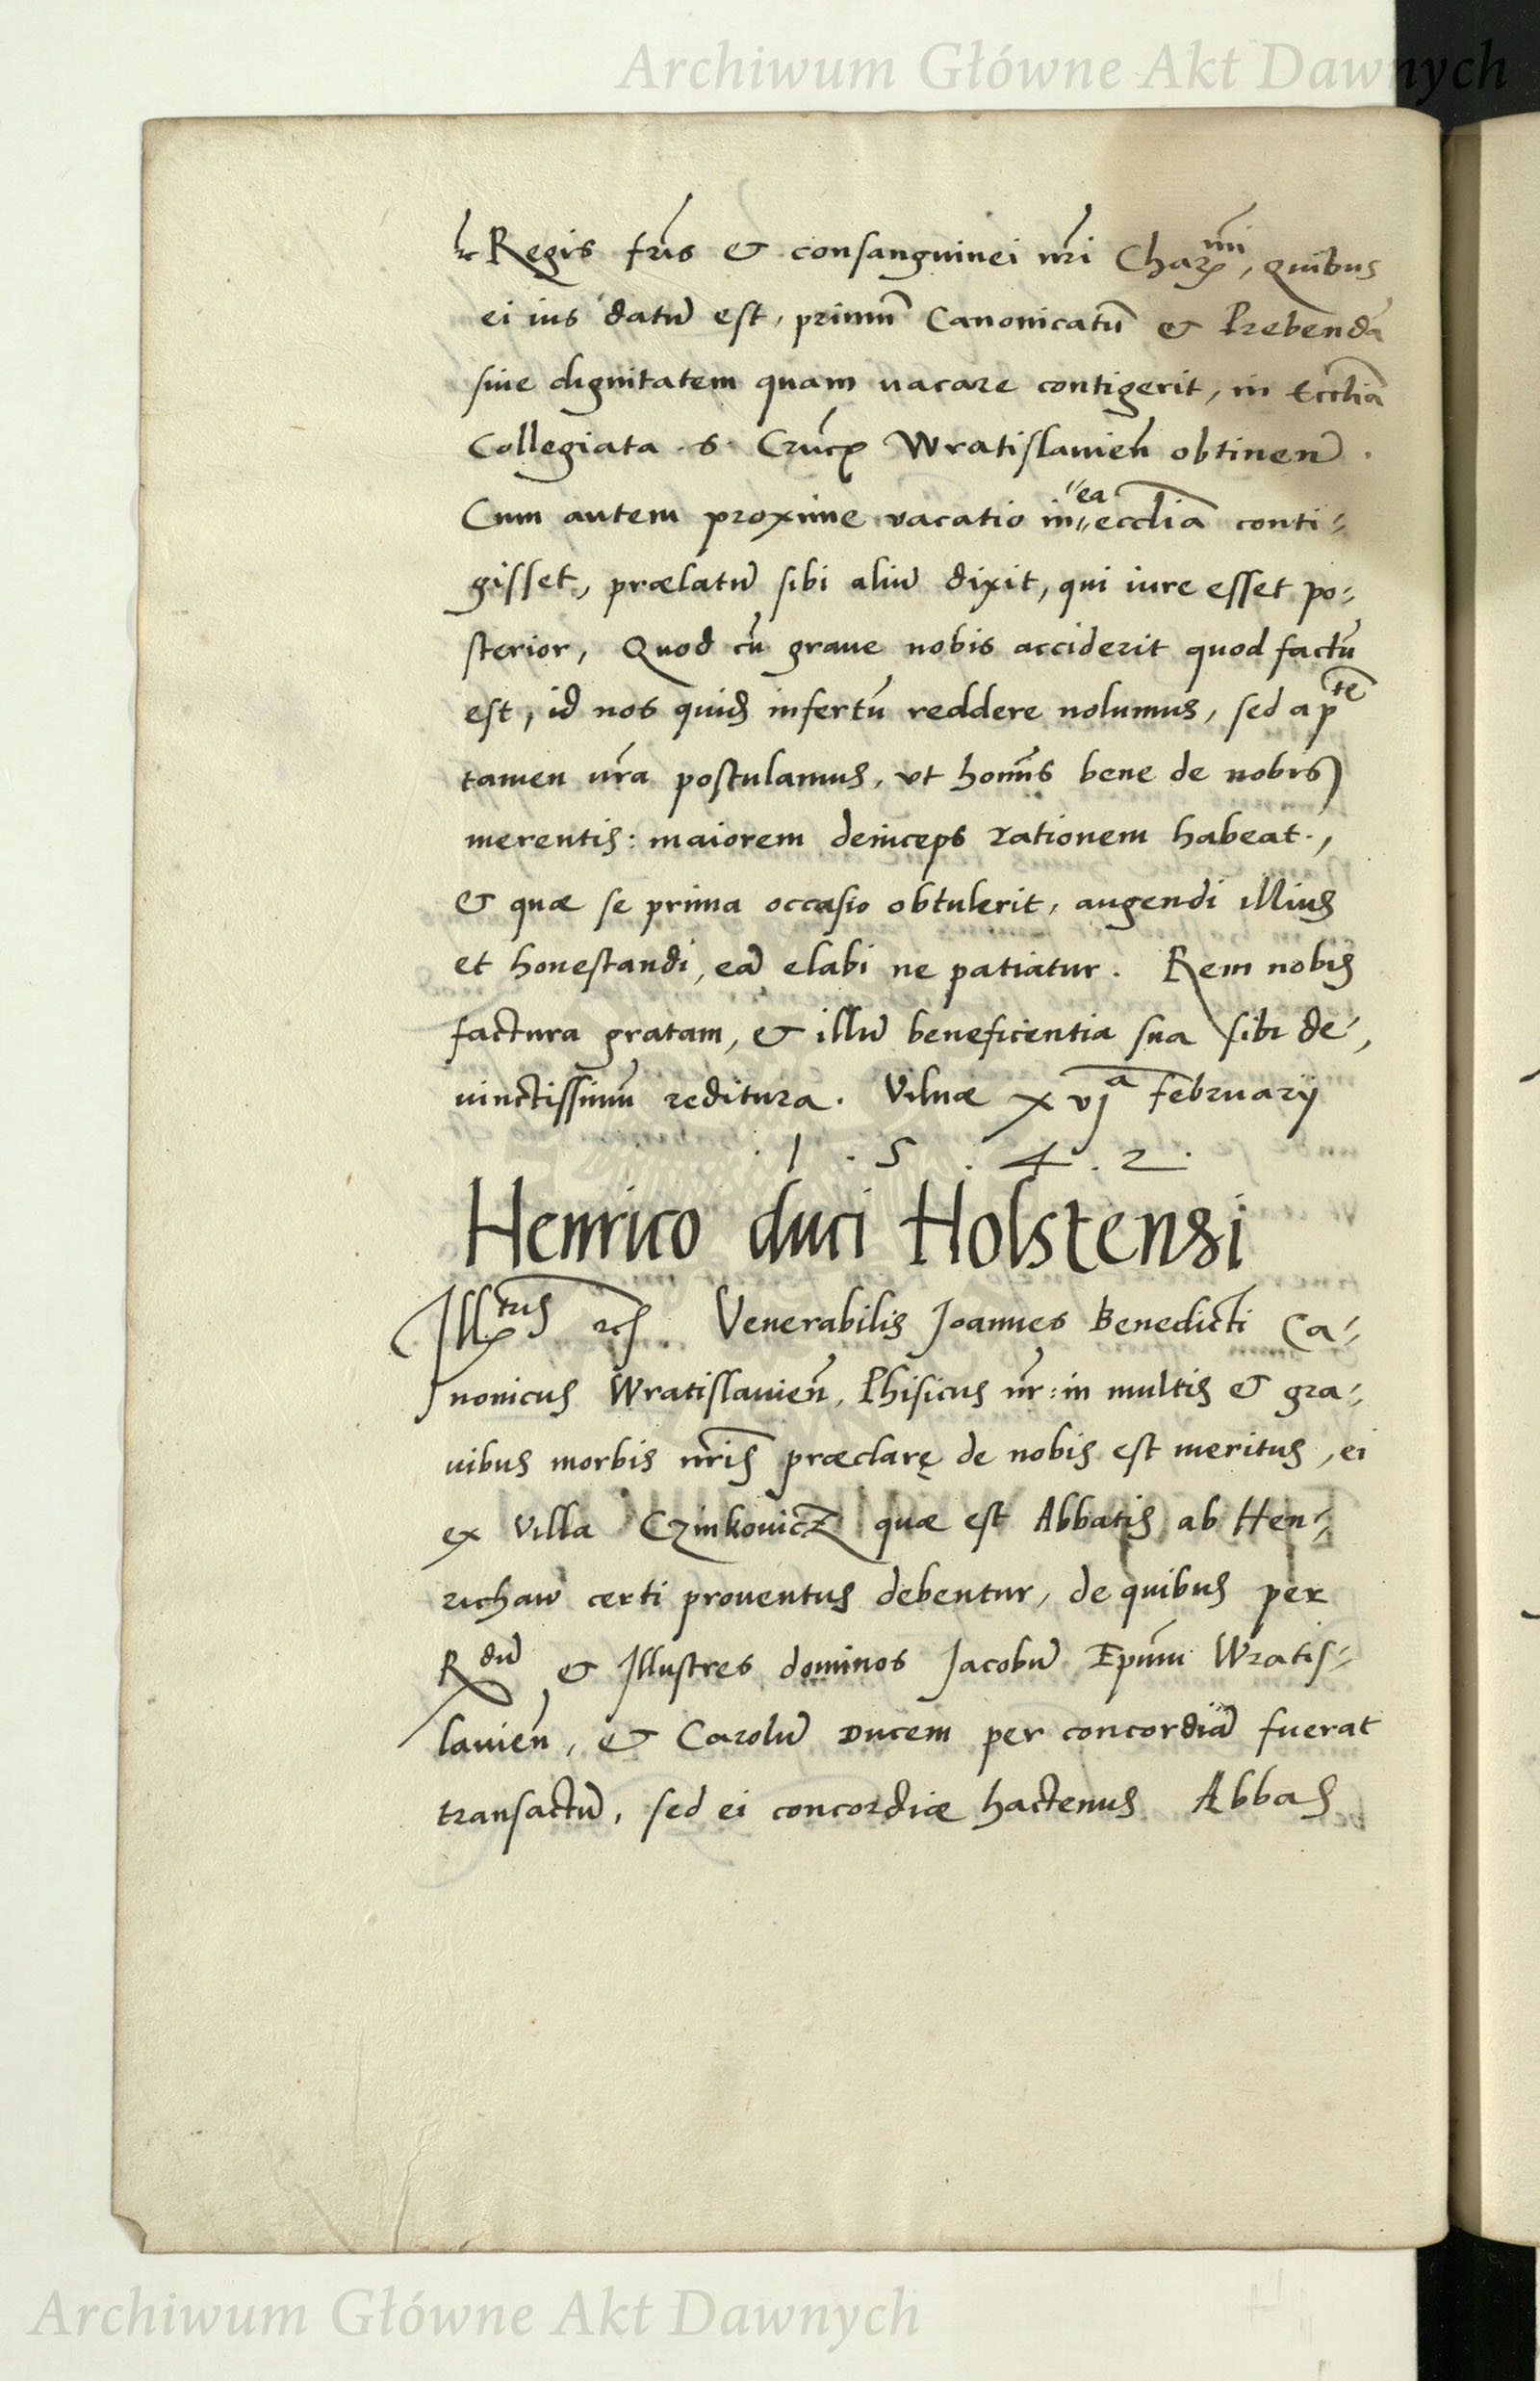 Archiwum Główne Akt Dawnych
Regis fris & consanguinei nri Charmi, quibus
ei ius datū est, primū Canonicatū & Prebendā
siue dignitatem quam uacare contigerit, in Ecclia
Collegiata S. Cruc Wratislauien obtinen.
Cum autem proxime vacatio in ea ecclia conti-
gisset, prælatū sibi aliū dixit, qui iure esset po-
sterior, Quod cū graue nobis acciderit quod factū
est, id nos quid infertū reddere nolumus, sed a pte
tamen nra postulamus, vt homīs bene de nobis
merentis: maiorem deinceps rationem habeat,
& quæ se prima occasio obtulerit, augendi illius
et honestandi, eā elabi ne patiatur. Rem nobis
factura gratam, & illū beneficentia sua sibi de-
uinctissimū reditura. Vilnæ xvja februarij
.1.5.4.2.
Henrico duci Holstensi
Illtris Venerabilis Joannes Benedicti Ca-
nonicus Wratislauien, Phisicus nr: in multis & gra-
uibus morbis nris præclarę de nobis est meritus, ei
ex villa Czinkouicz quæ est Abbatis ab Hen-
richaw certi prouentus debentur, de quibus per
Rdū & Illustres dominos Jacobū Epūm Wratis-
lauien, & Carolū Ducem per concordiā fuerat
transactū, sed ei concordiæ hactenus Abbas
Archiwum Główne Akt Dawnych